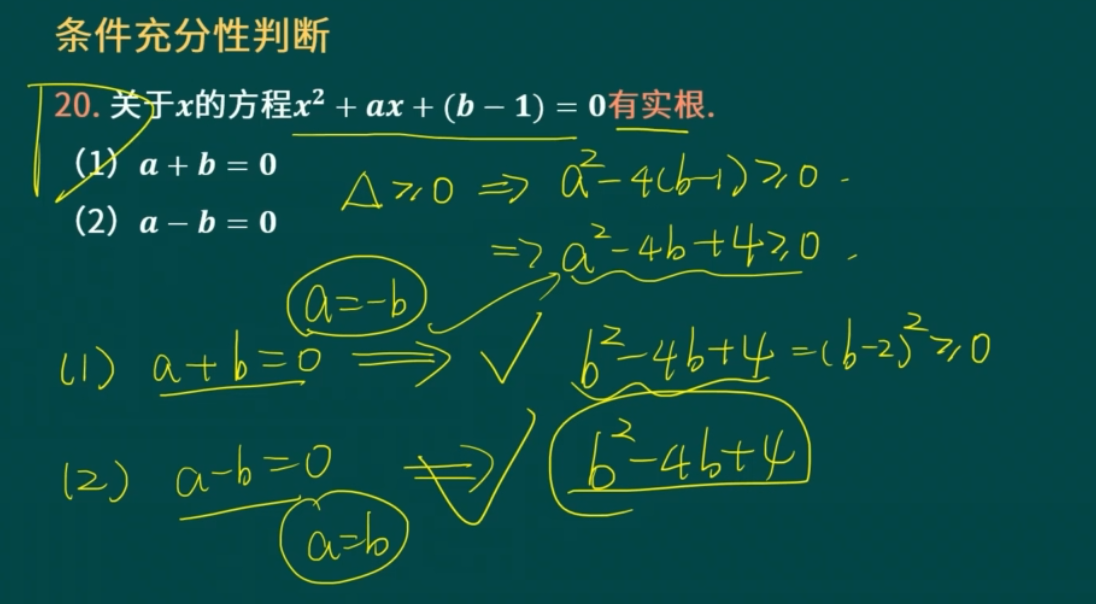 条件充分性判断
20. 关于x的方程x² + ax + (b − 1) = 0有实根.
（1）a + b = 0
（2）a − b = 0
Δ≥0 ⇒ a²-4(b-1)≥0.
⇒ a²-4b+4≥0.
a=-b
(1) a+b=0 ⇒ ✓ b²-4b+4=(b-2)²≥0
(2) a-b=0 ⇒ ✓ b²-4b+4
a=b